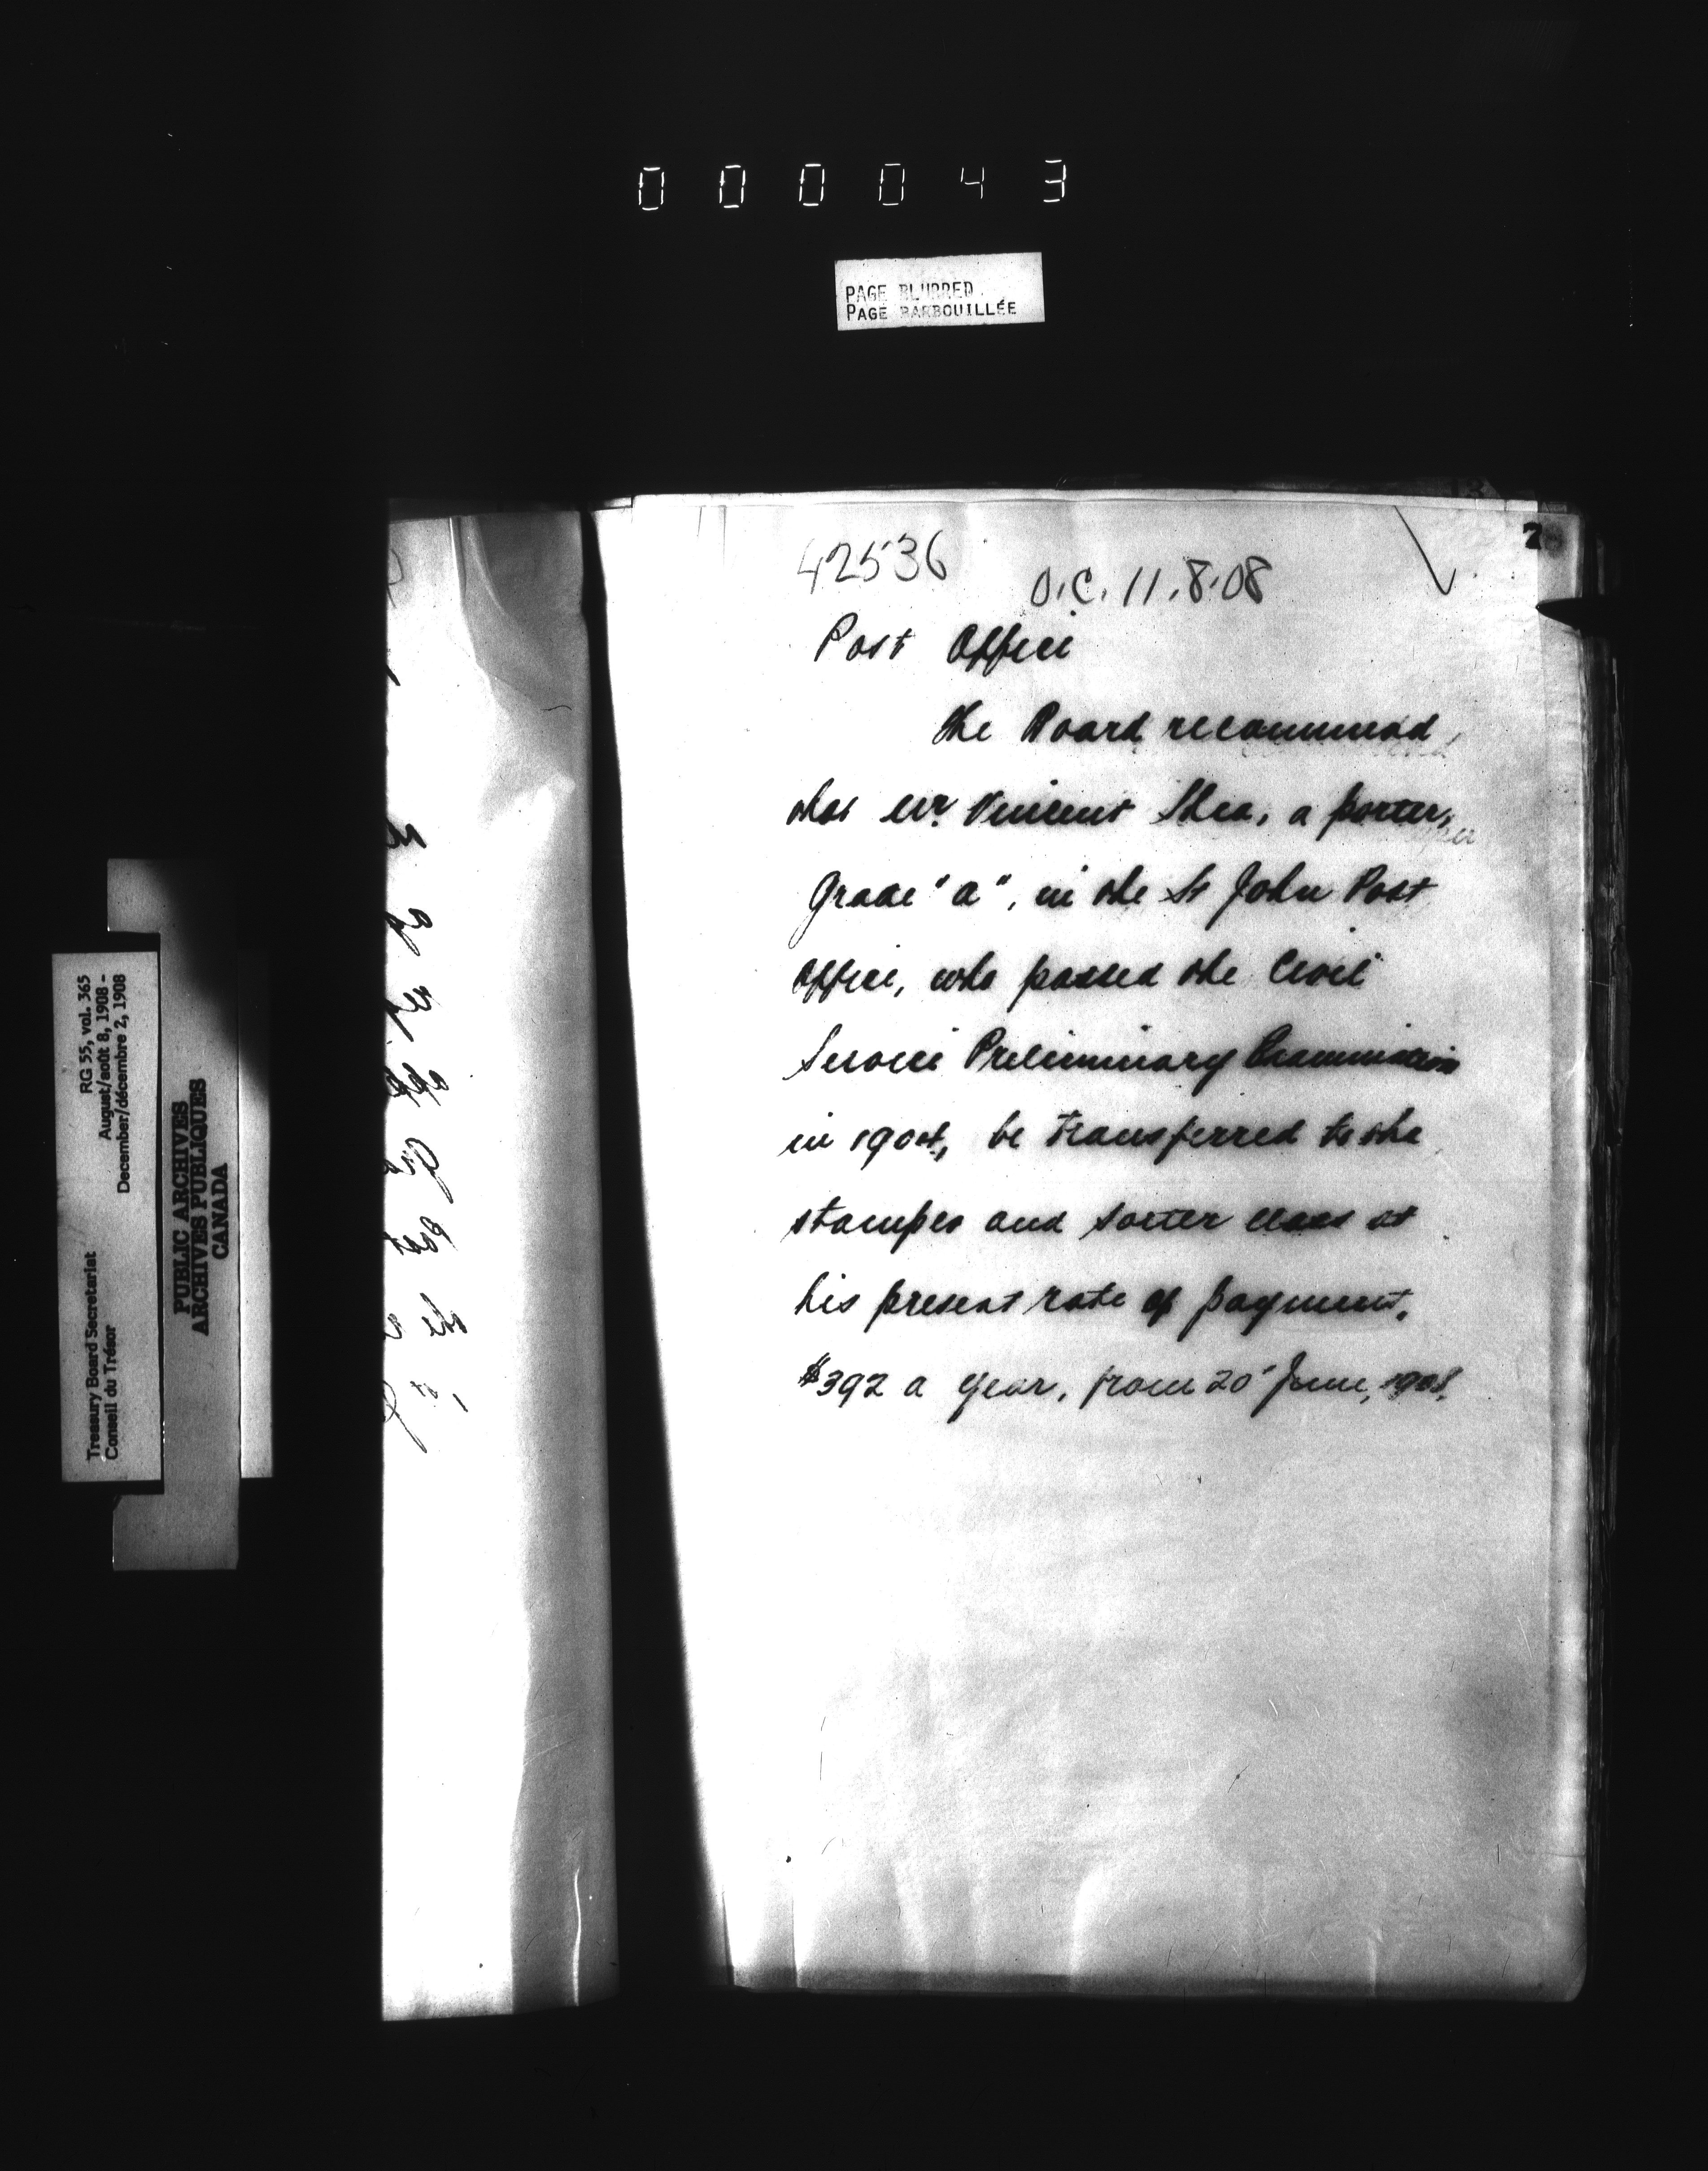 000043
PAGE BLURRED
PAGE BARBOUILLÉE
7
42536
O.C. 11.8.08
Post Office
The Board recommend
that Mr. Vincent Shea, a porter,
Grade "a", in the St John Post
Office, who passed the Civil
Service Preliminary Examination
in 1904, be transferred to the
stamper and sorter class at
his present rate of payment,
$392 a year, from 20 June, 1908.
Treasury Board Secretariat RG 55, vol. 365
Conseil du Trésor August/août 8, 1908 -
December/décembre 2, 1908
PUBLIC ARCHIVES
ARCHIVES PUBLIQUES
CANADA